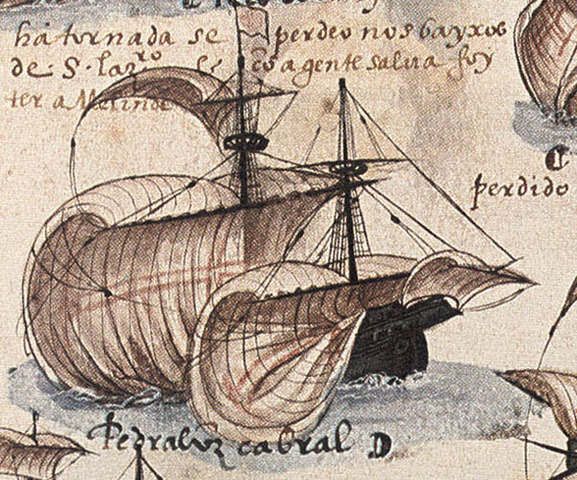 há tornada se perdeo nos bayxos
de S. lazro cõ a gente salua foy
ter a Melinde
perdido
Pedraluz cabral D